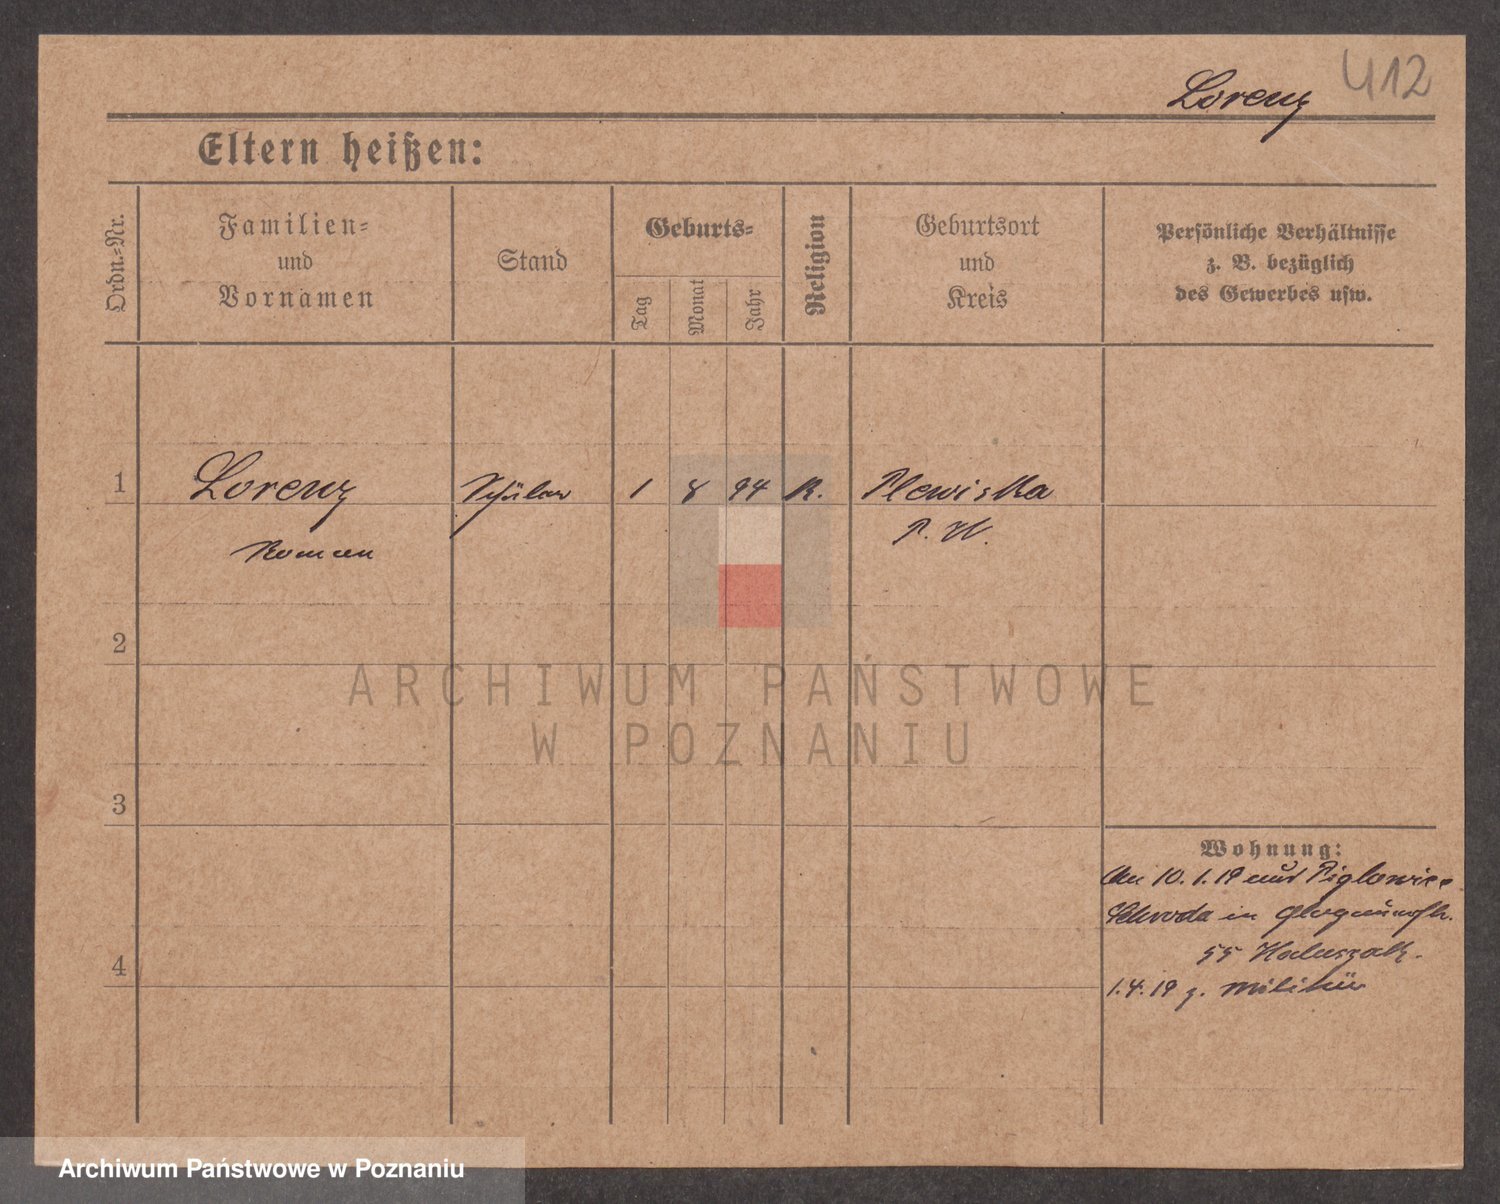 412
Lorenz
Eltern heißen:
Ordn=Nr.
Familien=
und
Vornamen
Stand
Geburts=
Tag
Monat
Jahr
Religion
Geburtsort
und
Kreis
Persönliche Verhältnisse
z. B. bezüglich
des Gewerbes usw.
1
Lorenz
Roman
Schüler
1
8
94
K.
Plewiska
P. W.
2
ARCHIWUM PAŃSTWOWE
W POZNANIU
3
Wohnung:
10.1.19 aus Piglowice
Schroda in
55
1.4.19 z. Militär
4
Archiwum Państwowe w Poznaniu